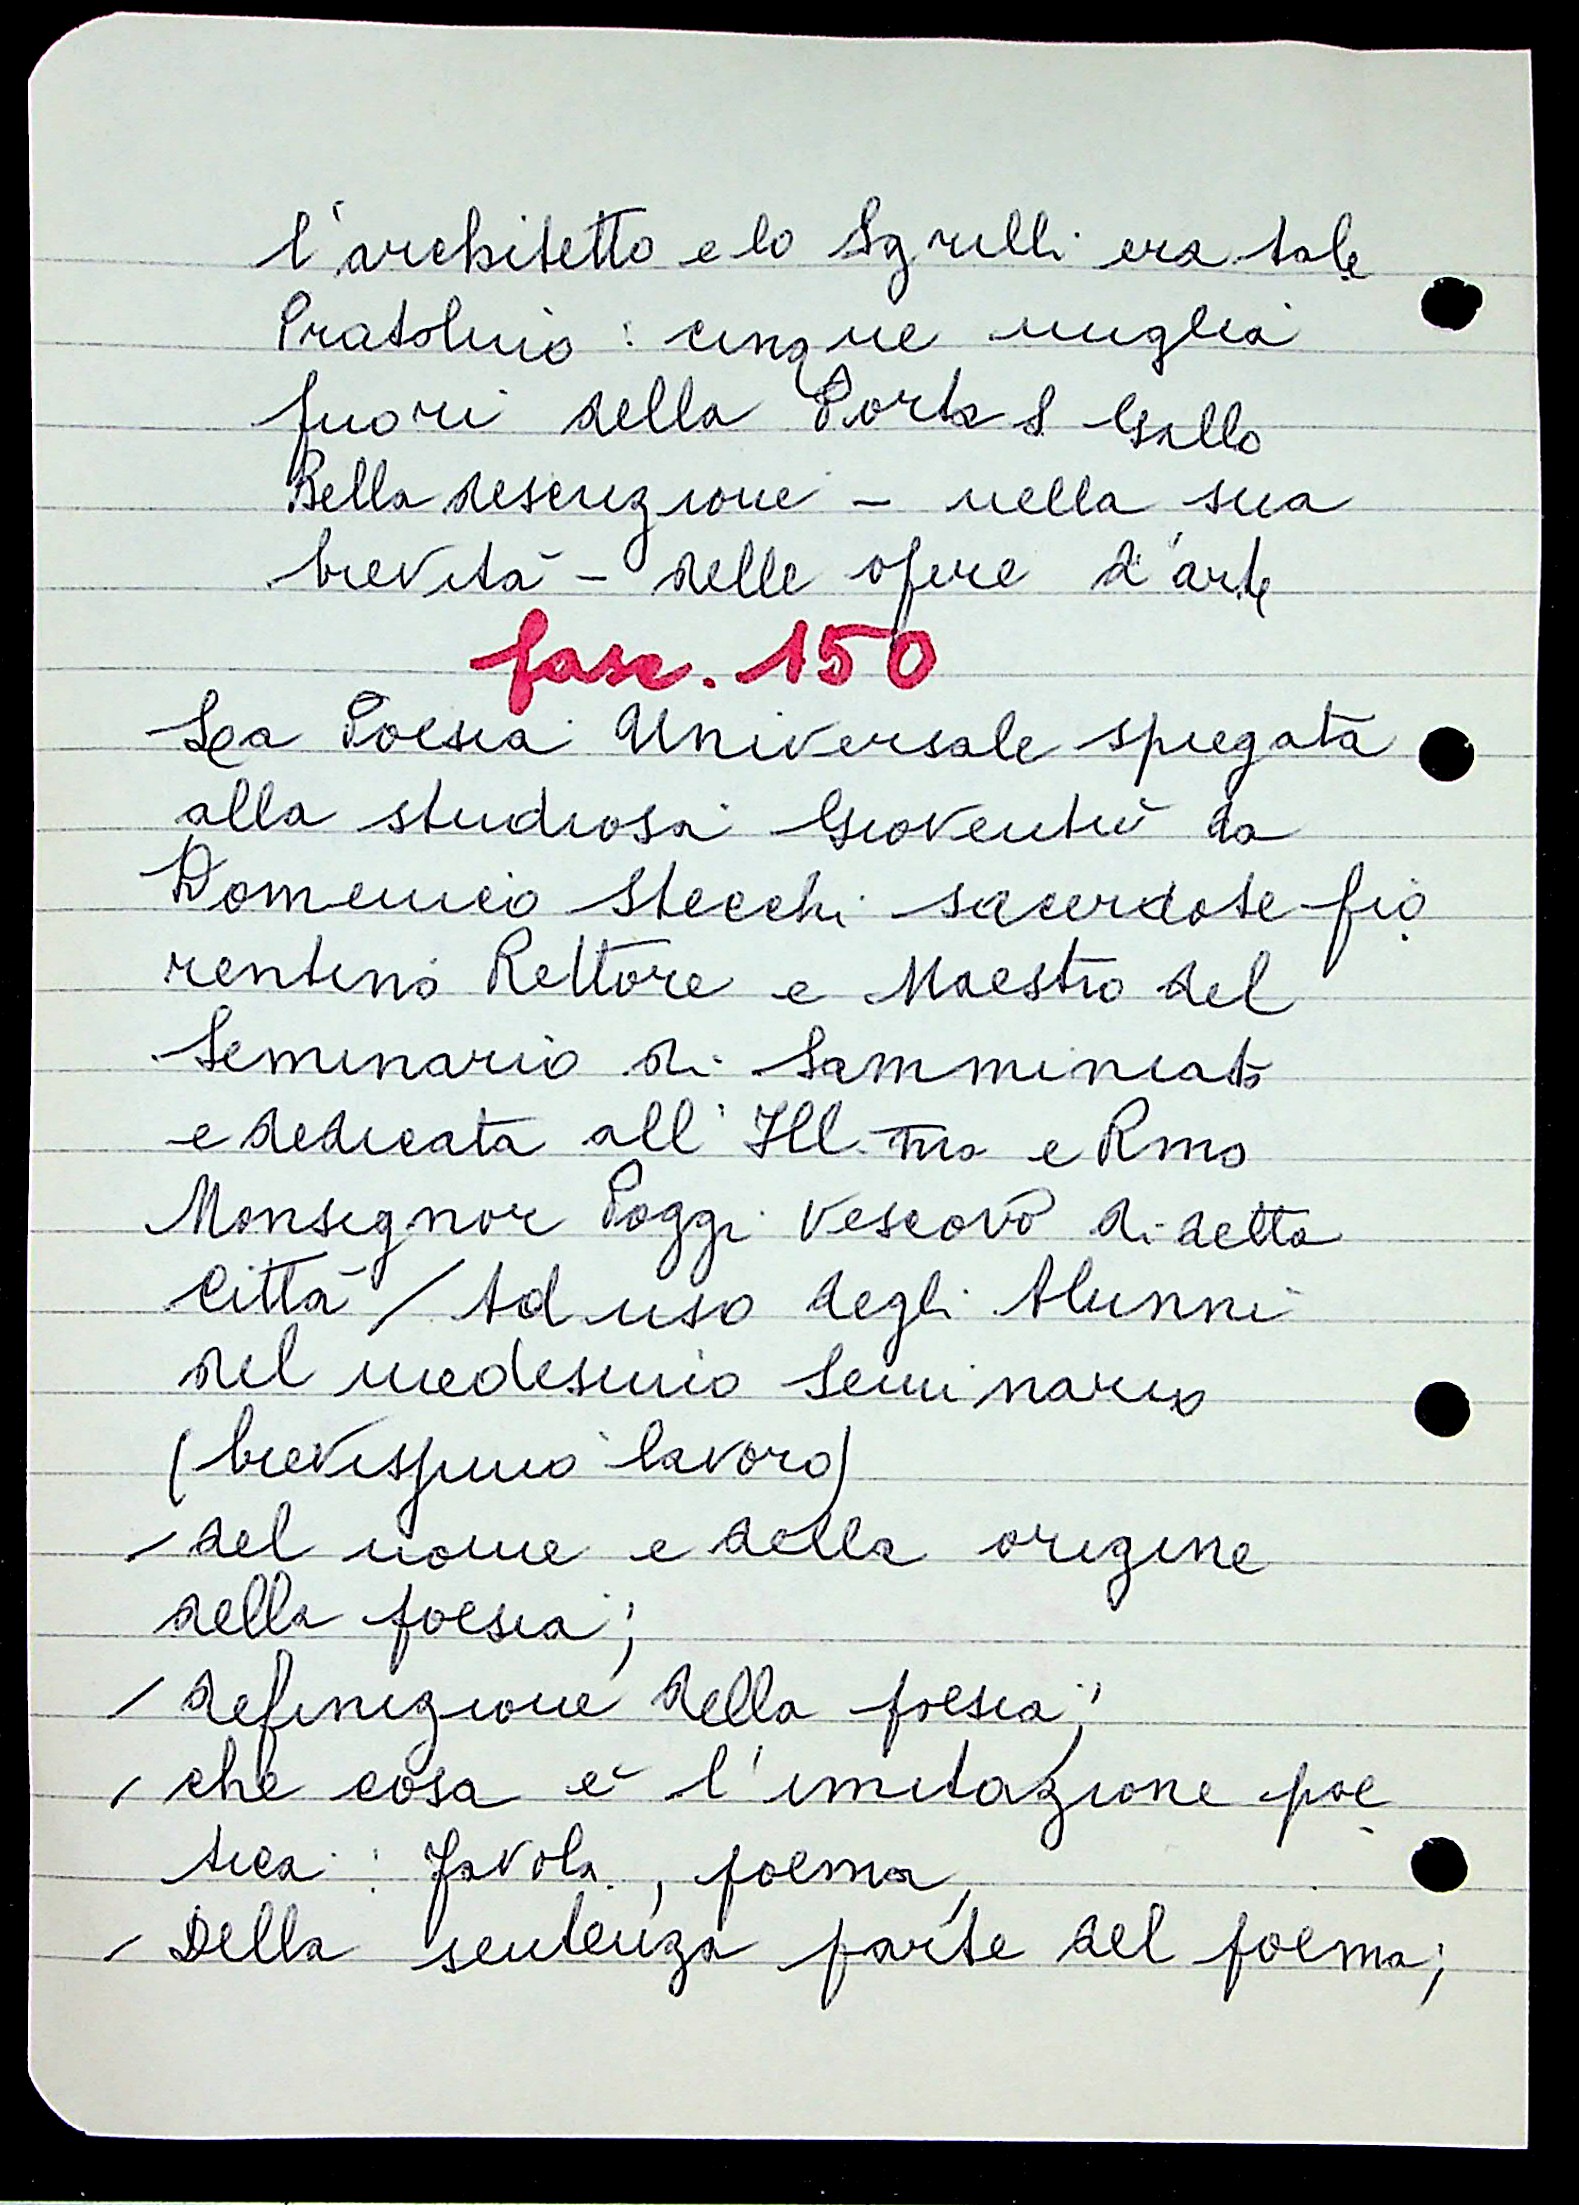 l'architetto e lo Sgrulli era tale
Pratolino : cinque miglia
fuori della Porta S Gallo
Bella descrizione – nella sua
brevità – delle opere d'arte
fasc. 150
La Poesia Universale spiegata
alla studiosa Gioventù da
Domenico Stecchi sacerdote fio
rentino Rettore e Maestro del
Seminario di Samminiato
e dedicata all'Ill.mo e Rmo
Monsignor Poggi Vescovo di detta
Città / Ad uso degli Alunni
del medesimo Seminario
(brevissimo lavoro)
/ del nome e della origine
della poesia;
/ definizione della poesia;
/ che cosa è l'imitazione poe
tica : favola, poema,
/ Della sentenza parte del poema;